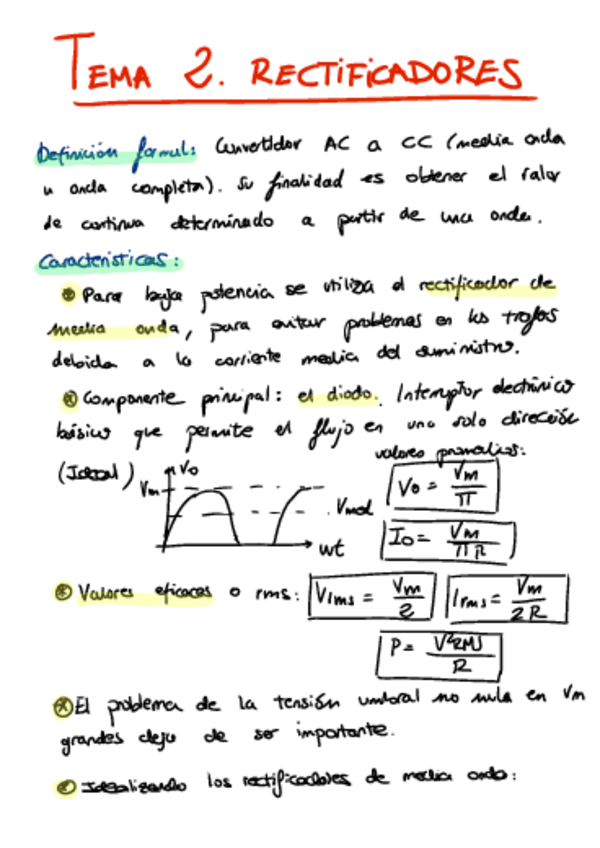 TEMA 2. RECTIFICADORES
Definición formal: Convertidor AC a CC (media onda
u onda completa). Su finalidad es obtener el valor
de continua determinado a partir de una onda.
Características:
Para baja potencia se utiliza el rectificador de
media onda, para evitar problemas en los trafos
debida a la corriente media del suministro.
Componente principal: el diodo. Interruptor electrónico
básico que permite el flujo en una sola dirección
valores promedios:
(Ideal) Vo Vm Vmed wt
Vo = Vm/π
Io = Vm/πR
Valores eficaces o rms: Vrms = Vm/2 Irms = Vm/2R
P = V²RMS/R
El problema de la tensión umbral no nula en Vm
grandes deja de ser importante.
Idealizando los rectificadores de media onda: